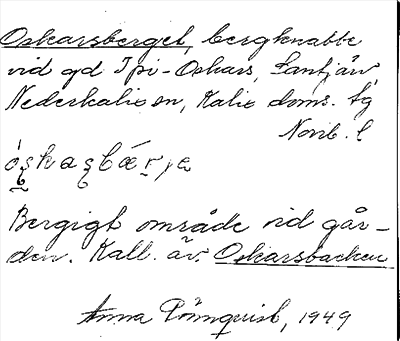 Oskarsberget, bergknabbe
vid gd Ipi-Oskars, Sanfjärv,
Nederkalix sn, Kalix doms. tg
Norrb. l.
óskasbærja
Bergigt område vid går-
den. Kall. äv. Oskarsbacken
Anna Rönnquist, 1949